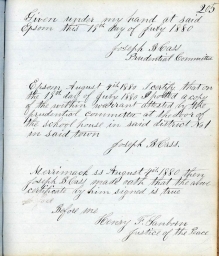 265
Given under my hand at said
Epsom this 18th day of July 1880
Joseph B Cass
Prudential Committee
Epsom August 9th 1880 I certify that on
the 18th day of July 1880 I posted a copy
of the within warrant attested by the
prudential committee at the door of
the school house in said district No 1
in said town
Joseph B. Cass.
Merrimack ss August 9th 1880 then
Joseph B Cass made oath that the above
certificate by him signed is true
Before me
Henry F. Sanborn
Justice of the Peace